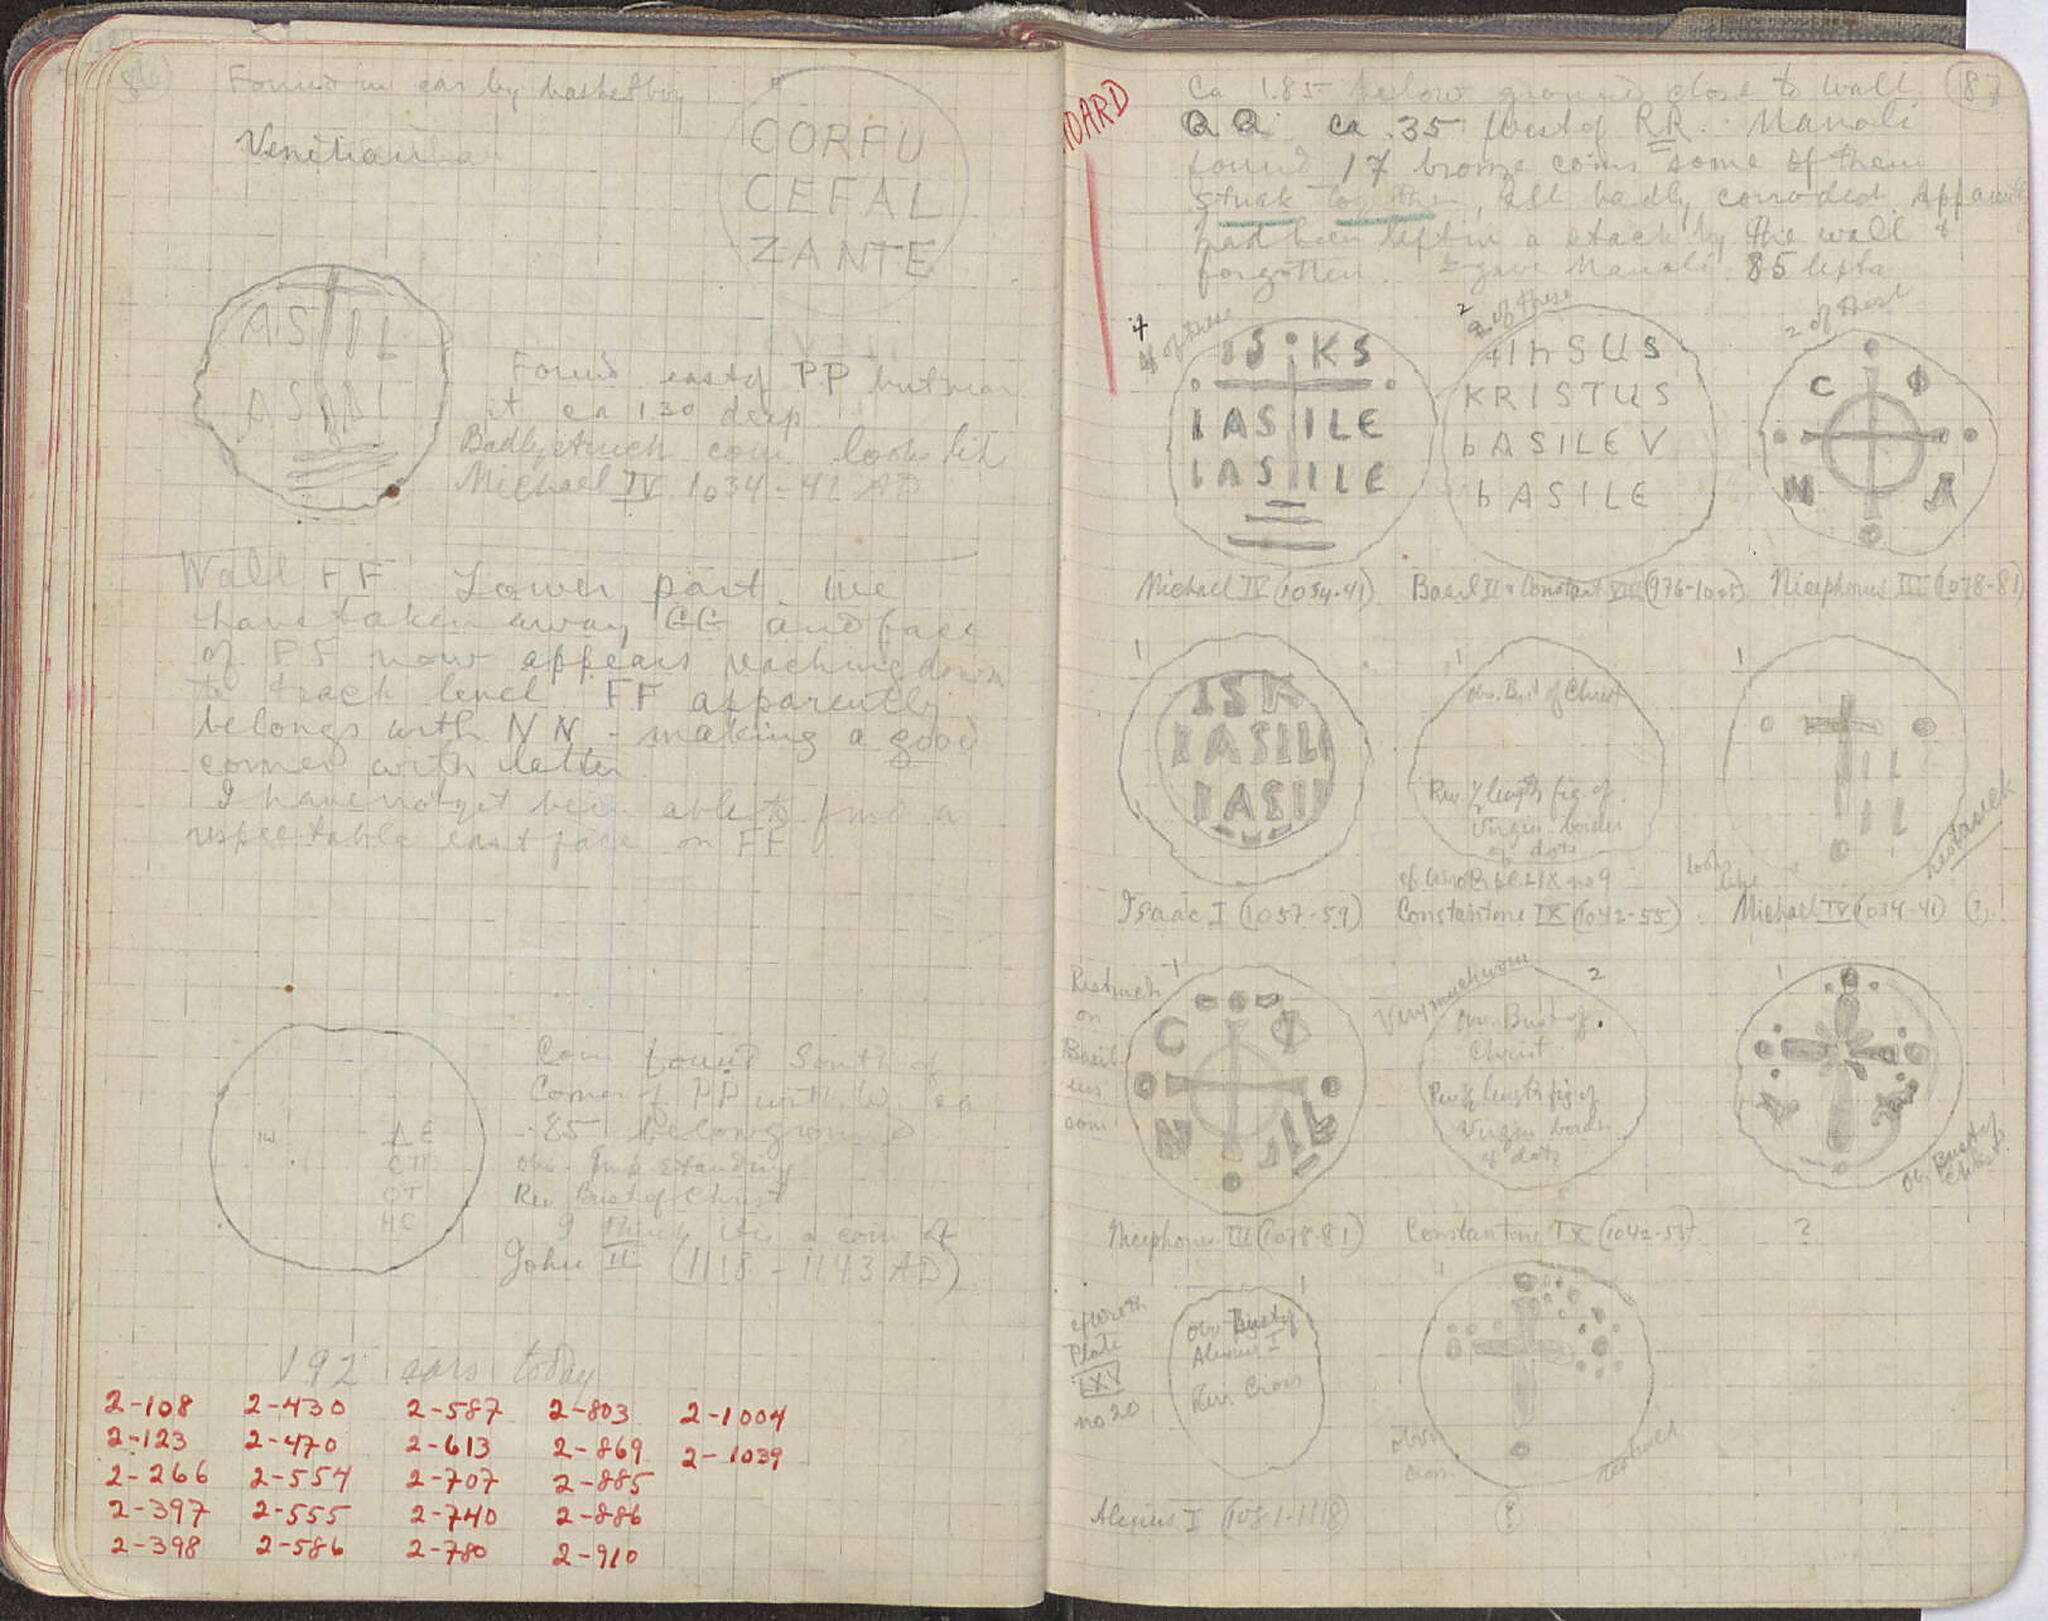 86
Found in car by basket boy
Venetian
CORFU
CEFAL
ZANTE
ASIL
ASIL
Found east of PP but near
it ca 1.30 deep
Badly struck coin looks like
Michael IV 1034-41 AD
Wall FF Lower part. We
have taken away GG and face
of FF now appears reaching down
to track level. FF apparently
belongs with NN - making a good
corner with latter.
I have not yet been able to find a
respectable east face on FF
Coin found South of
Corner of PP with W. ca
.85 below ground
obv. Imp standing
Rev Bust of Christ
I think it is a coin of
John II (1118-1143 AD)
ΔΕ
CΠ
OT
HC
192 cars today
2-108 2-430 2-587 2-803 2-1004
2-123 2-470 2-613 2-869 2-1039
2-266 2-554 2-707 2-885
2-397 2-555 2-740 2-886
2-398 2-586 2-780 2-910
HOARD
87
Ca 1.85 below ground close to wall
QQ ca .35 west of RR. Manoli
found 17 bronze coins some of them
stuck together, all badly corroded. Apparently
had been left in a stack by the wall &
forgotten. I gave Manoli 85 lepta
4 of these
IS KS
IASILE
IASIILE
Michael IV (1034-41)
2 of these
IhSUS
KRISTUS
bASILEV
bASILE
Basil II & Constant VIII (976-1025)
2 of these
C Φ
N Δ
Nicephorus III (1078-81)
1
ISK
IASILI
IASII
Isaac I (1057-59)
1
obv. Bust of Christ
Rev. ½ length fig. of
Virgin border
of dots
cf. Wroth pl. LIX no 9
Constantine IX (1042-55)
1
IL
IL
restruck
looks
like
Michael IV (1034-41) (?)
Restruck
on
Basil-
eus
coin
1
C Φ
N
Nicephorus III (1078-81)
Very much worn
2
Obv. Bust of
Christ
Rev ½ length fig of
Virgin border
of dots
Constantine IX (1042-55)
1
Ob. Bust of
Christ
?
cf Wroth
Plate
LXV
no 20
1
Obv Bust of
Alexius I
Rev. Cross
Alexius I (1081-1118)
1
obv.
restruck
?